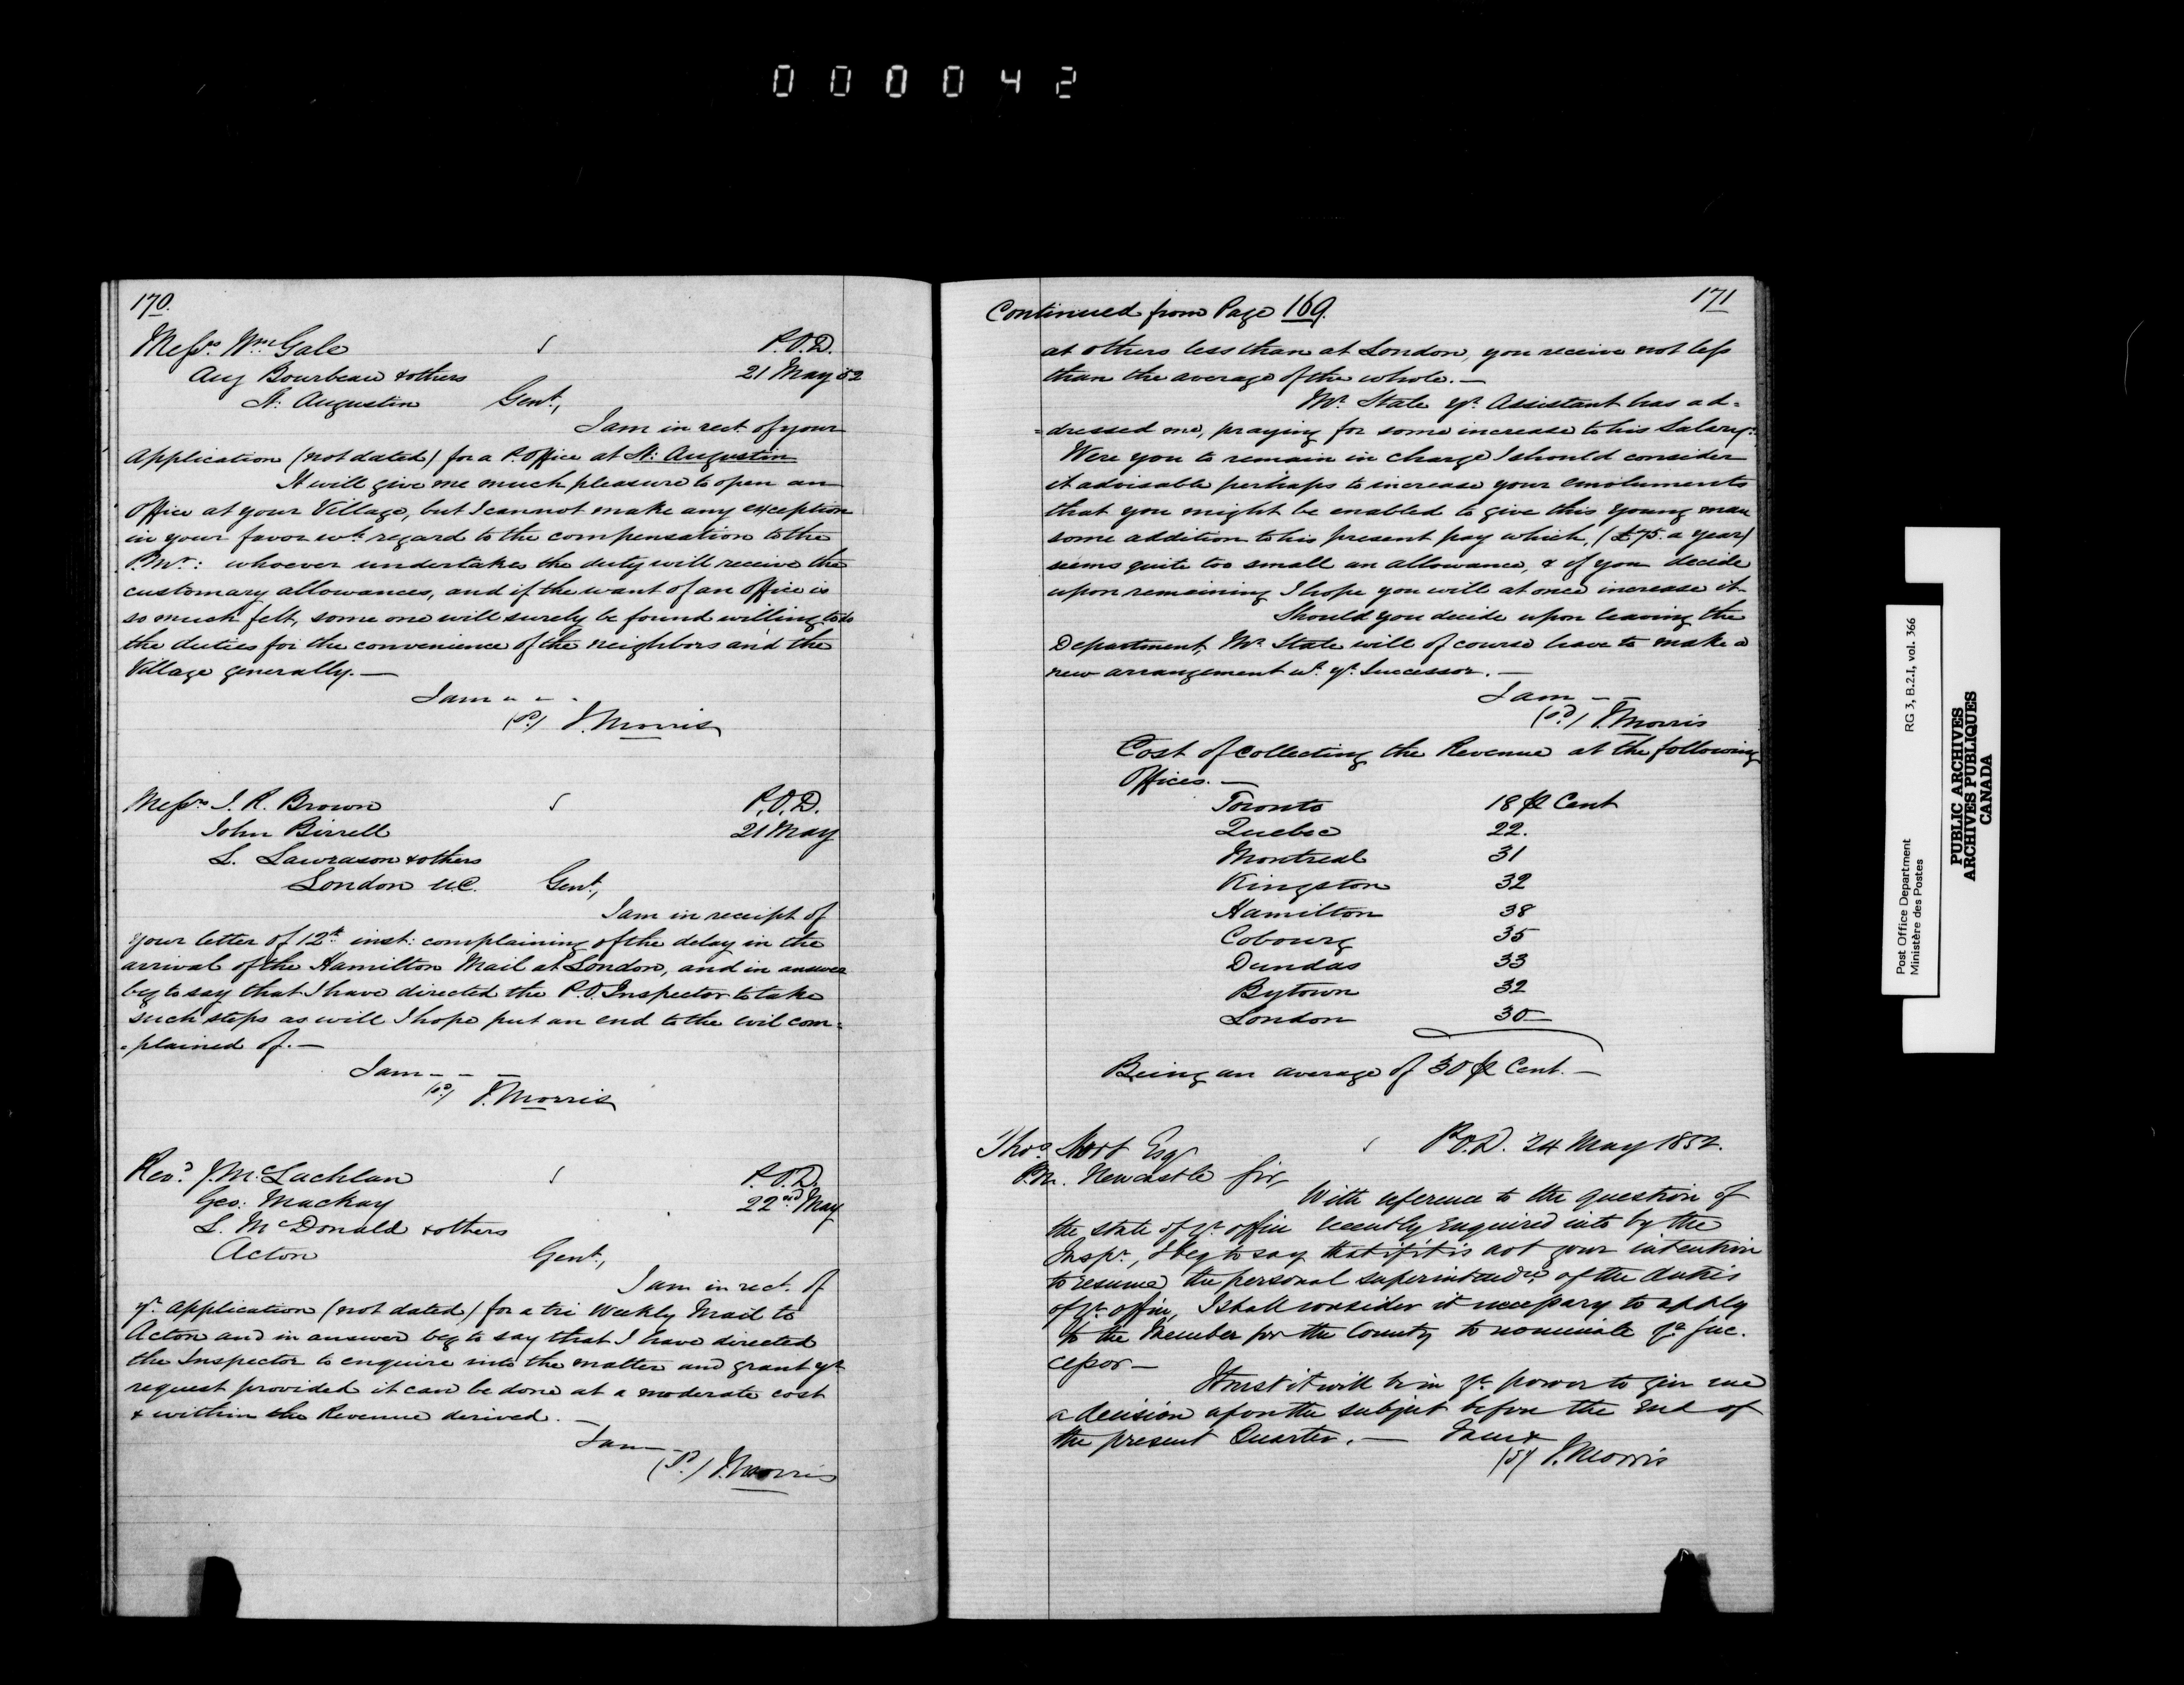 000042
170.
Messrs. Wm. Gale P.O.D.
Aug Bourbeau & others 21 May 52
St. Augustin Gent,
I am in rect. of your
Application (not dated) for a P. Office at St. Augustin
It will give me much pleasure to open an
Office at your Village, but I cannot make any exception
in your favor wt. regard to the compensation to the
P.Mr.: whoever undertakes the duty will receive the
customary allowances, and if the want of an Office is
so much felt, some one will surely be found willing to do
the duties for the convenience of the neighbors and the
Village generally. —
I am - - -
(sd.) J. Morris
Messrs J. R. Brown P.O.D.
John Birrell 21 May
L. Lawrason & others
London U.C. Gent,
I am in receipt of
your letter of 12th inst: complaining of the delay in the
arrival of the Hamilton Mail at London, and in answer
beg to say that I have directed the P.O. Inspector to take
such steps as will I hope put an end to the evil com=
=plained of. —
I am - - -
(sd.) J. Morris
Revd. J. McLachlan P.O.D.
Geo: Mackay 22nd May
L. McDonald & others
Acton Gent,
I am in rect. of
yr. application (not dated) for a tri Weekly Mail to
Acton and in answer beg to say that I have directed
the Inspector to enquire into the matter and grant yr.
request provided it can be done at a moderate cost
& within the Revenue derived. —
I am - -
(sd.) J. Morris
171
Continued from Page 169.
at others less than at London, you receive not less
than the average of the whole. —
Mr. State yr. Assistant has ad=
=dressed me, praying for some increase to his Salary:
Were you to remain in charge I should consider
it advisable perhaps to increase your emoluments
that you might be enabled to give this young man
some addition to his present pay which, (£75. a year)
seems quite too small an allowance, & if you decide
upon remaining I hope you will at once increase it.
Should you decide upon leaving the
Department Mr. State will of course have to make a
new arrangement wt. yr. Successor. —
I am - -
(sd.) J. Morris
Cost of collecting the Revenue at the following
Offices. —
Toronto 18 ⅌ Cent
Quebec 22.
Montreal 31
Kingston 32
Hamilton 38
Cobourg 35
Dundas 33
Bytown 32
London 30
Being an average of 30 ⅌ Cent. —
Thos. Esqr P.O.D. 24 May 1852.
P.M. Newcastle Sir,
With reference to the question of
the state of yr. office recently enquired into by the
Inspr., I beg to say that if it is not your intention
to resume the personal superintendce. of the duties
of yr. office, I shall consider it necessary to apply
to the Member for the County to nominate yr. Suc.
cessor —
I trust it will be in yr. power to give me
a decision upon the subject before the end of
the present Quarter. — I am &
(sd) J. Morris
Post Office Department RG 3, B.2.1, vol. 366
Ministère des Postes
PUBLIC ARCHIVES
ARCHIVES PUBLIQUES
CANADA